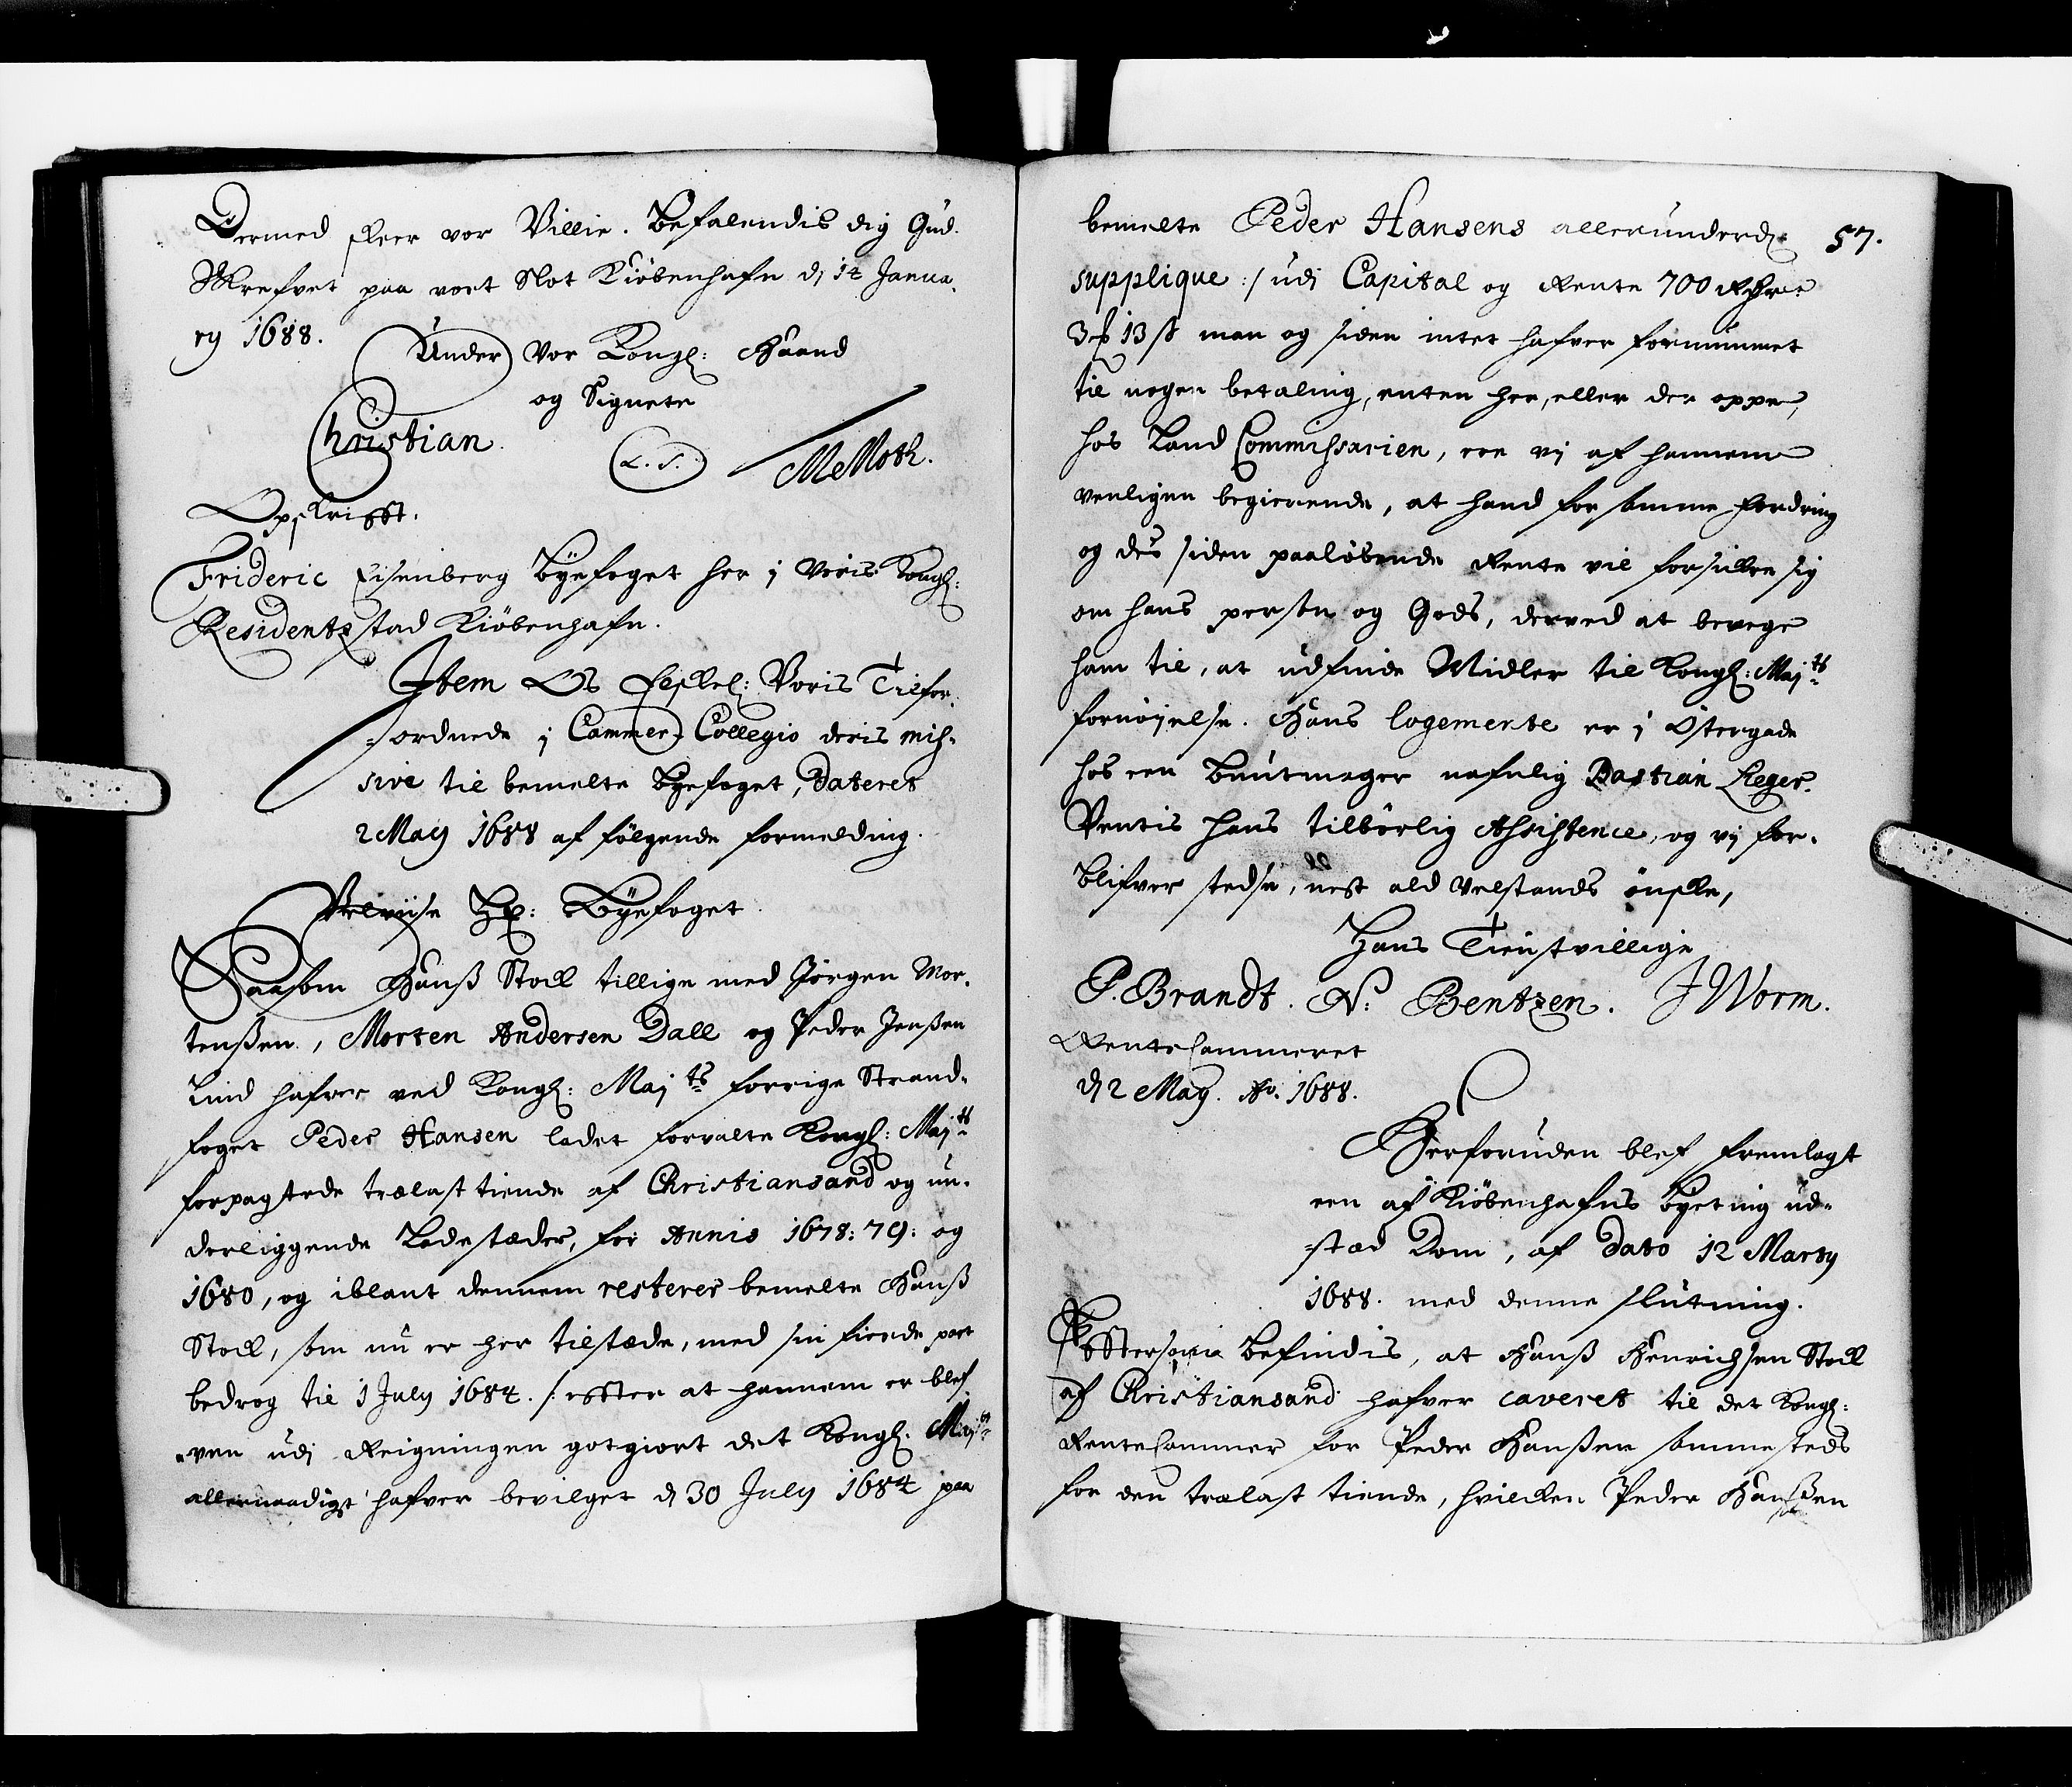 Dermed skeer vor Villie. Befalendis dig Gud.
Skrefvet paa vort Slot Kiöbenhafn dj 14 Janua,
ry 1688.
Under Vor Kongl: Haand
og Signete
Christian
L. S.
M Moth.
Opskrifft.
Frideric Eisenberg Byefoget her j Voris Kongl:
Residentzstad Kiöbenhafn.
Item Os Elskel: Voris Tilfor.
=ordnede j Cammer-Collegio deris mis-
sive til bemelte Byefoget, Dateret
2 May 1688 af fölgende formelding.
Velviise Hr: Byefoget
Saasom Hanß Stoll tillige med Jörgen Mor.
tenßen, Morten Andersen Dall og Peder Jenßen
Lind hafver ved Kongl: Maj ts forrige Strand-
foget Peder Hansen ladet forvalte Kongl: Maj ts
forpagtede trælast tiende af Christiansand og un-
derliggende Ladestæder, for Annis 1678: 79: og
1680, og iblant dennem resterer bemelte Hanß
Stoll, som nu er her tilstæde, med sin fierde part
bedrog til 1 July 1684. /: effter at hannem er blef
ven udj Reigningen gotgiort det Kongl. Maj ts
allernaadigst hafver bevilget d 30 July 1684 paa
bemelte Peder Hansens allerunderd 57.
supplique :/ udj Capital og Rente 700 Rdr
3 13 ß man og siden intet hafver fornummet
til nogen betaling, enten her, eller der oppe,
hos Land Commissarien, ere vj af hannem
venligen begierende, at hand for samme fordring
og des siden paalöbende Rente vil forsikre sig
om hans person og Gods, derved at bevege
ham til, at udfinde Midler til Kongl: Maj ts
fornöjelse. Hans logemente er j Östergade
hos een Buntmager nafnlig Bastian Leger.
Ventis hans tilbörlig Assistence, og vj for-
blifver stedse, nest ald Velstands önske,
Hans Tienstvillige
P. Brandt. N: Bentzen. J Worm.
RenteCammeret
d 2 May. Ao. 1688.
Herforuden blef fremlagt
een af Kiöbenhafns Byeting ud-
=stæd Dom, af dato 12 Marty
1688. med denne slutning.
Effterson Befindis, at Hanß Henrichsen Stoll
af Christiansand hafver caveret til det Kongl:
RenteCammer for Peder Hanßen sammesteds
for den trælast tiende, hvilcken Peder Hanßen